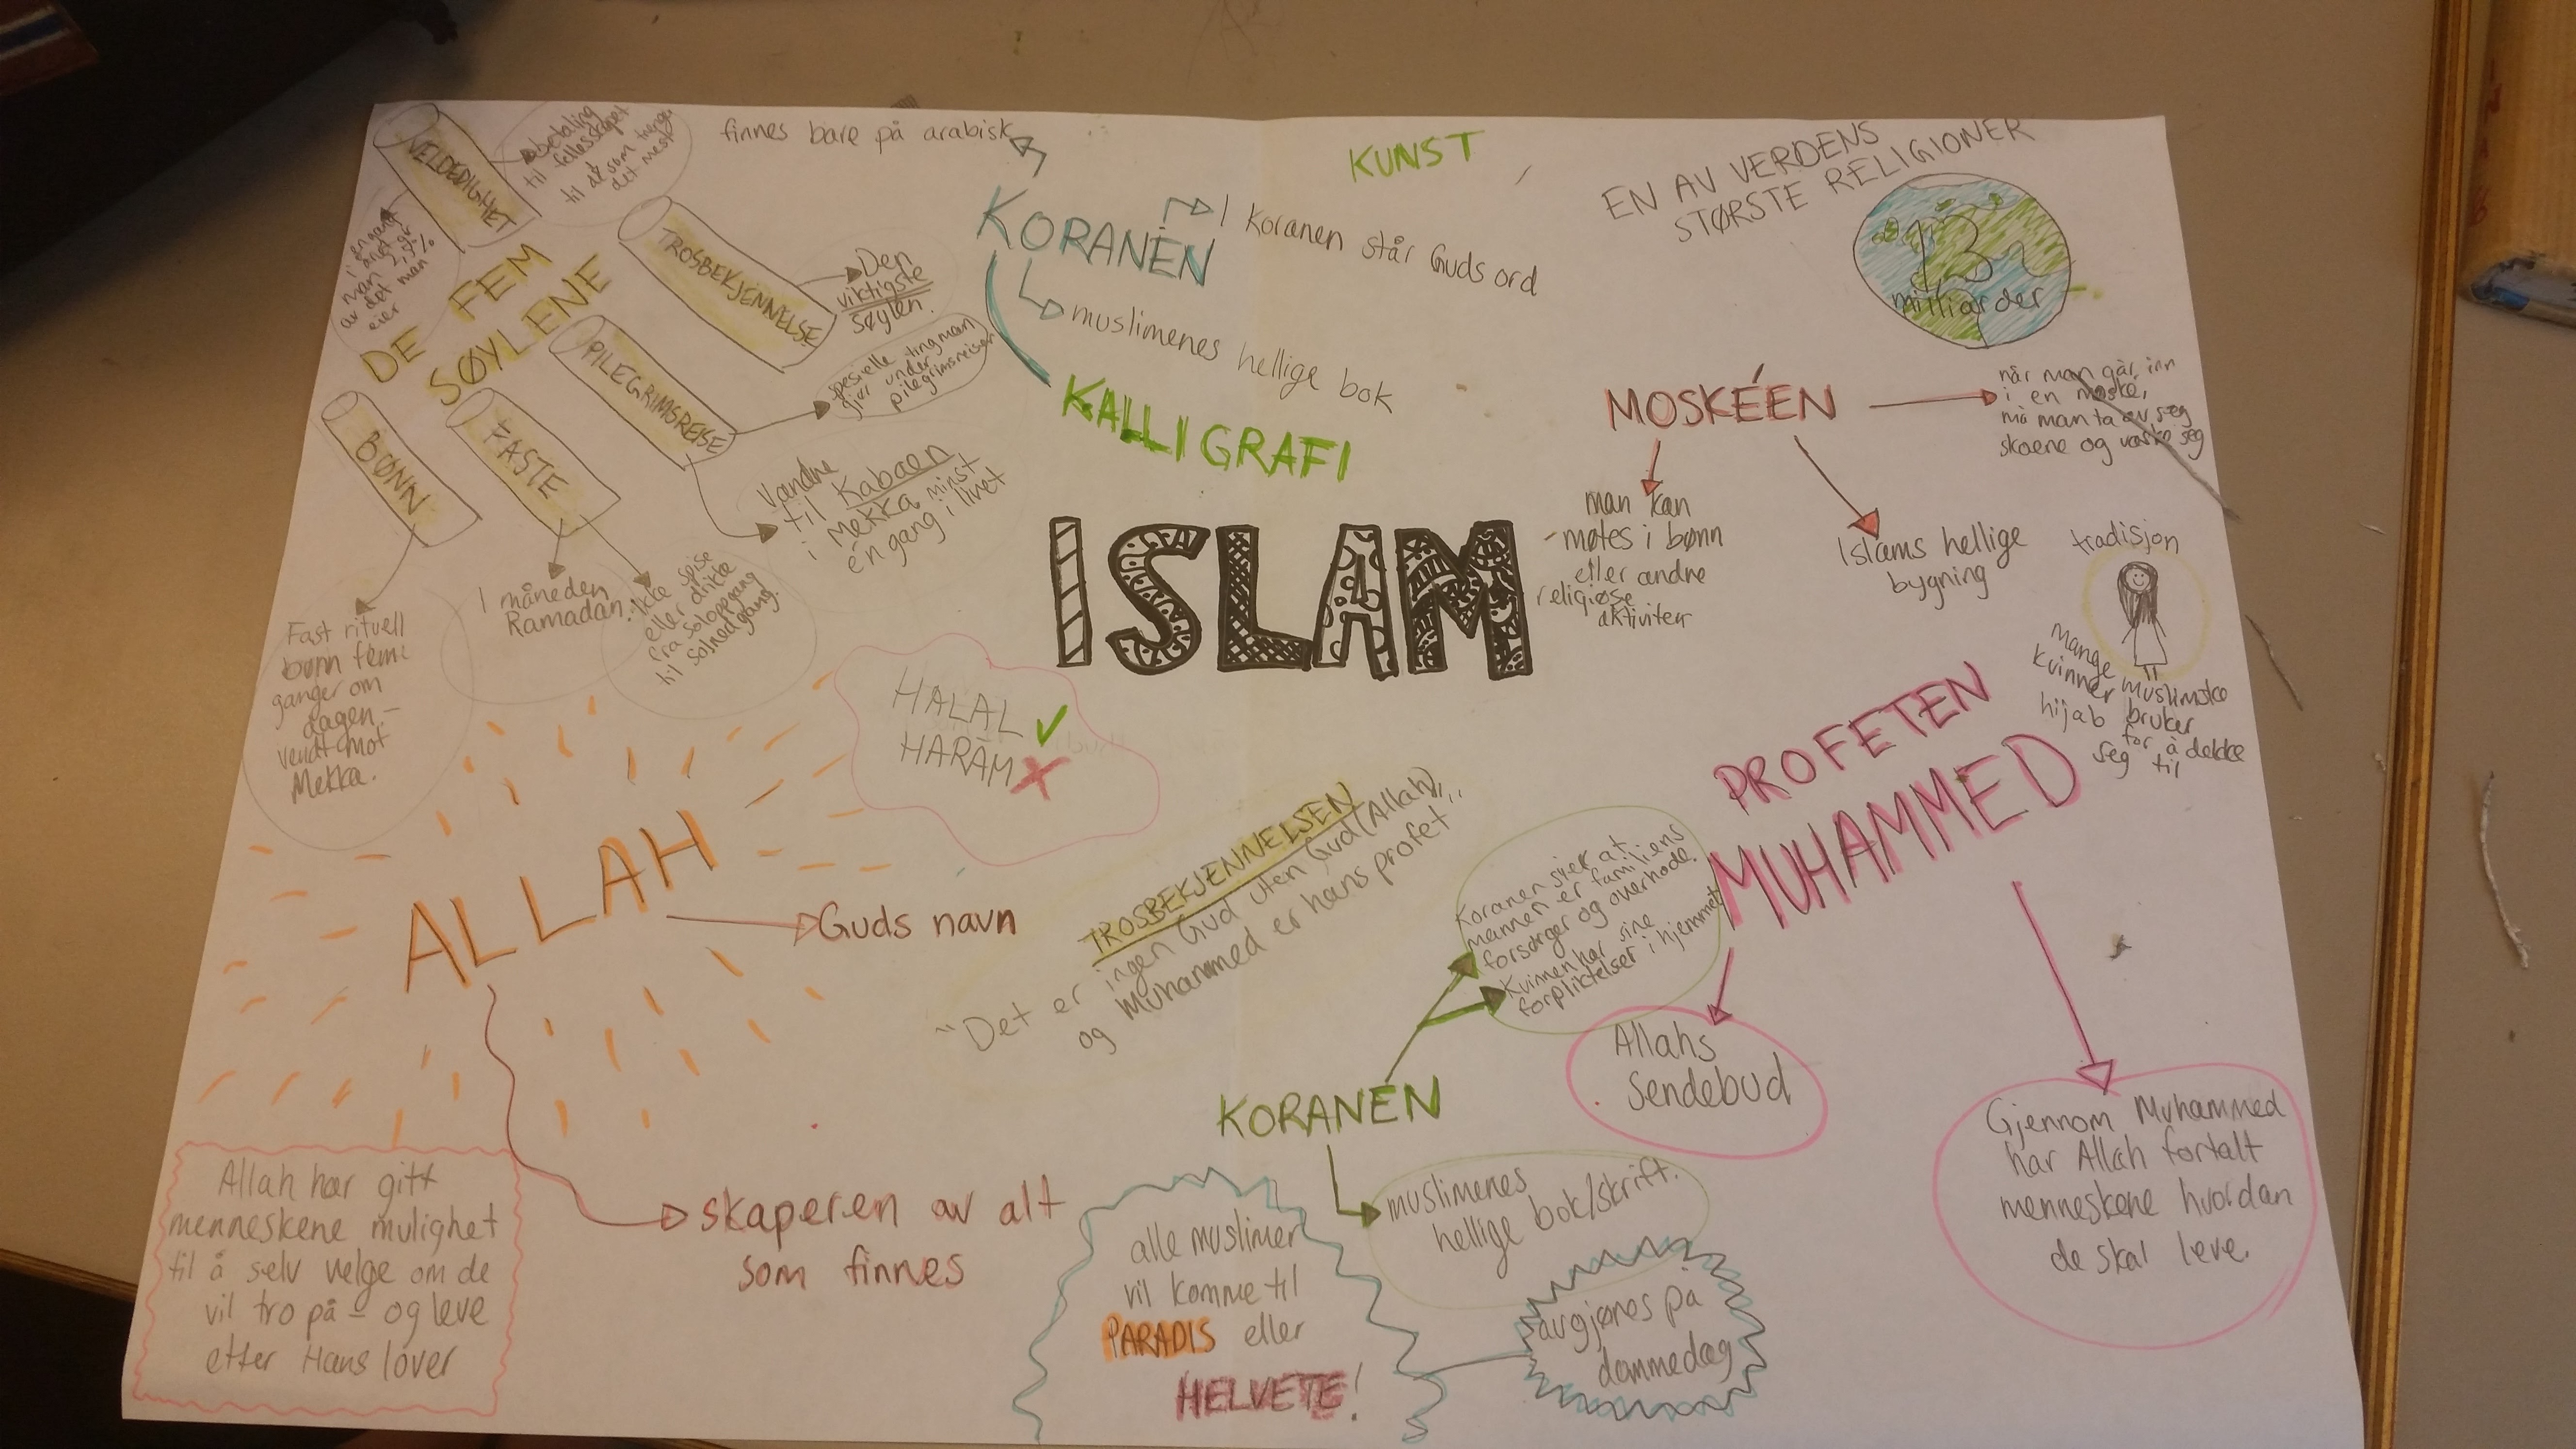 VELDEDIGHET
betaling
til fellesskapet
til de som trenger
det mest
en gang
i året gir
man 2,5%
av det man
eier
DE FEM
SØYLENE
TROSBEKJENNELSE
Den
viktigste
søylen.
PILEGRIMSREISE
spesielle ting man
gjør under
pilegrimsreisen
Vandre
til Kabaen
i Mekka minst
én gang i livet
BØNN
Fast rituell
bønn fem
ganger om
dagen -
vendt mot
Mekka.
FASTE
I måneden
Ramadan.
Ikke spise
eller drikke
fra soloppgang
til solnedgang.
finnes bare på arabisk
KORANEN
I Koranen står Guds ord
muslimenes hellige bok
KUNST
KALLIGRAFI
EN AV VERDENS
STØRSTE RELIGIONER
1,3
milliarder
MOSKÉEN
når man går inn
i en moské,
må man ta av seg
skoene og vaske seg
man kan
møtes i bønn
eller andre
religiøse
aktiviteter
Islams hellige
bygning
tradisjon
mange muslimske
kvinner bruker
hijab for å dekke
seg til
ISLAM
HALAL
HARAM
PROFETEN
MUHAMMED
Allahs
Sendebud
Gjennom Muhammed
har Allah fortalt
menneskene hvordan
de skal leve.
ALLAH
Guds navn
skaperen av alt
som finnes
Allah har gitt
menneskene mulighet
til å selv velge om de
vil tro på - og leve
etter Hans lover
TROSBEKJENNELSEN
"Det er ingen Gud uten Gud (Allah),
og Muhammed er hans profet"
KORANEN
Koranen sier at
mannen er familiens
forsørger og overhode.
Kvinnen har sine
forpliktelser i hjemmet
muslimenes
hellige bok/skrift.
alle muslimer
vil komme til
PARADIS eller
HELVETE!
avgjøres på
dommedag